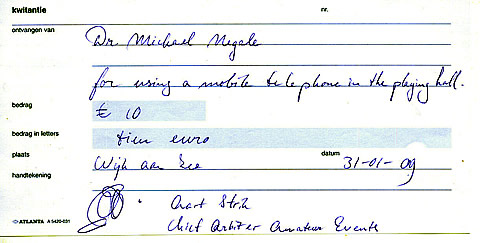 kwitantie nr.
ontvangen van Dr. Michael Negele
for using a mobile telephone in the playing hall.
bedrag € 10
bedrag in letters tien euro
plaats Wijk aan Zee datum 31-01-09
handtekening
Aart Strik
ATLANTA A 5420-031 Chief Arbiter Amateur Events